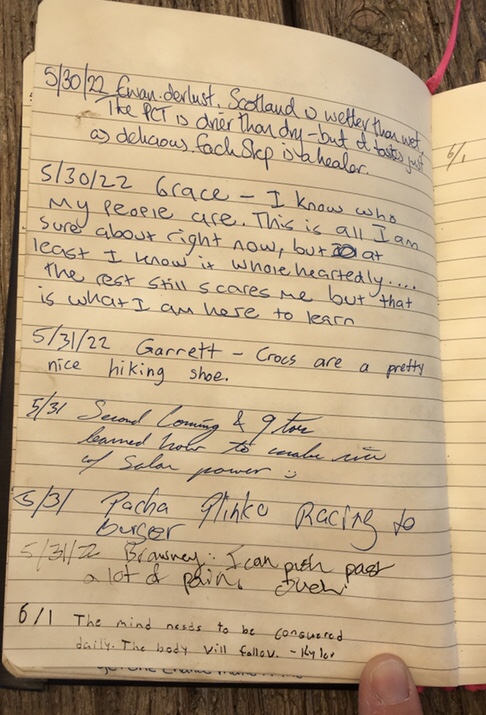 5/30/22 Ewan.derlust. Scotland is wetter than wet.
The PCT is drier than dry - but it tastes just
as delicious. Each Step is a healer.
5/30/22 Grace - I know who
my people are. This is all I am
sure about right now, but at
least I know it wholeheartedly....
the rest still scares me but that
is what I am here to learn
5/31/22 Garrett - Crocs are a pretty
nice hiking shoe.
5/31 Second Coming & 9 toe
learned how to make rice
w/ Solar power :)
5/31 Pacha Plinko Racing to
burger
5/31/22 Brawney: I can push past
a lot of pain. Ouch.
6/1 The mind needs to be conquered
daily. The body will follow. - Kyler
6/1